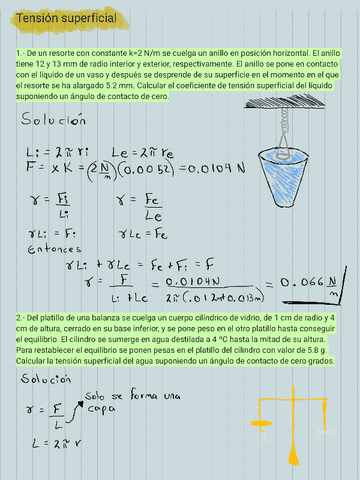 Tensión superficial
1.- De un resorte con constante k=2 N/m se cuelga un anillo en posición horizontal. El anillo
tiene 12 y 13 mm de radio interior y exterior, respectivamente. El anillo se pone en contacto
con el líquido de un vaso y después se desprende de su superficie en el momento en el que
el resorte se ha alargado 5.2 mm. Calcular el coeficiente de tensión superficial del líquido
suponiendo un ángulo de contacto de cero.
Solución
Li = 2πri Le = 2πre
F = xK = (2 N/m)(0.0052) = 0.0104 N
γ = Fi/Li γ = Fe/Le
γLi = Fi γLe = Fe
Entonces
γLi + γLe = Fe + Fi = F
γ = F/(Li+Le) = 0.0104N/(2π(.012+0.013m)) = 0.066 N/m
2.- Del platillo de una balanza se cuelga un cuerpo cilíndrico de vidrio, de 1 cm de radio y 4
cm de altura, cerrado en su base inferior, y se pone peso en el otro platillo hasta conseguir
el equilibrio. El cilindro se sumerge en agua destilada a 4 ºC hasta la mitad de su altura.
Para restablecer el equilibrio se ponen pesas en el platillo del cilindro con valor de 5.8 g.
Calcular la tensión superficial del agua suponiendo un ángulo de contacto de cero grados.
Solución
Solo se forma una
capa
γ = F/L
L = 2πr